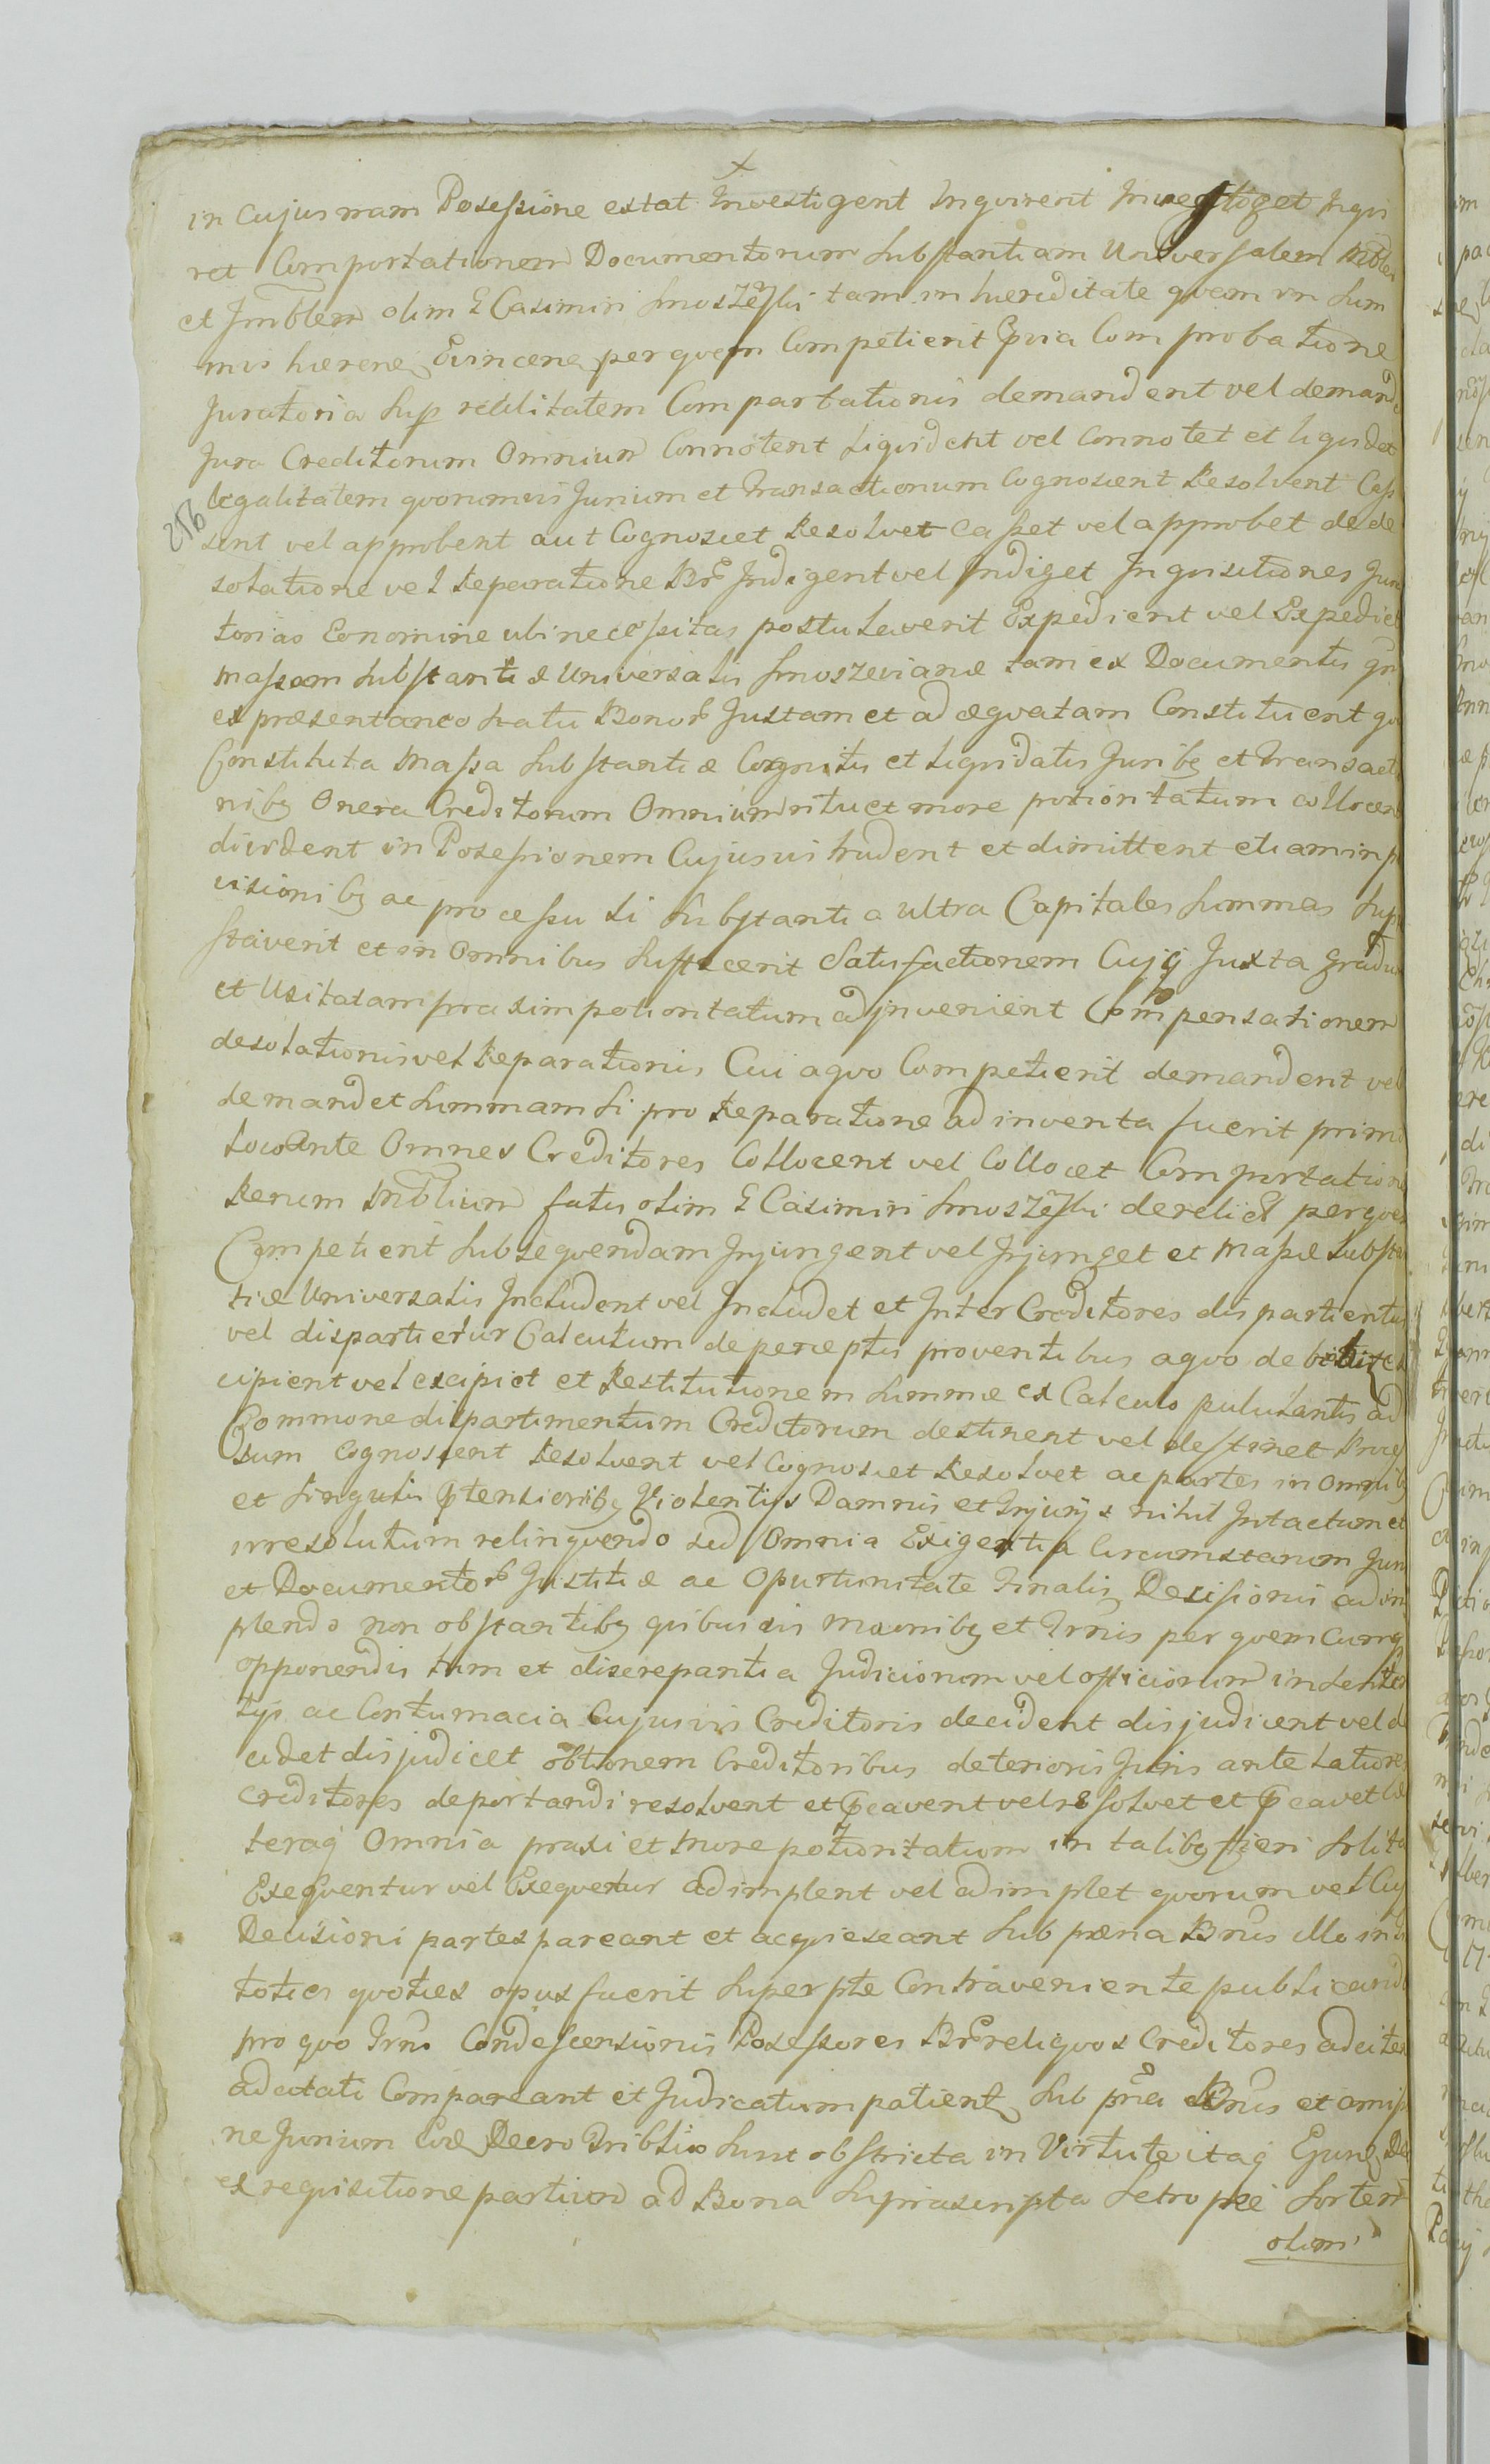 x
in Cujusnam Posessione extat Investigent Inqvirent Investiget Inqvi
ret Comportationem Documentorum Substantiam Universalem Mblem
et Imblem olim G Casimiri Smoszewski tam in hæreditate qvam in Sum
mis hærene Evincene per qvem Competierit Qvia Comprobatione
Juratoria Sup reălitatem Comportationis demandent vel demand
Jura Creditorum Omnium Connotent Liqvident vel Connotet et liqvidet
legalitatem qvorumvis Jurium et Transactionum Cognoscent Resolvent Cas
sent vel approbent aut Cognoscet Resolvet Casset vel approbet de de
216
solatione vel Reparatione Br Indigent vel Indiget Inqvisitiones Jura
torias Eonomine ubi necessitas postulaverit Expedient vel Expediet
Massam Substantiæ Universalis Smoszevianæ tam ex Documentis qv
ex præsentaneo statu Bonor Justam et adæqvatam Constituent qv
Constituta Massa Substantiæ Cognitis et Liqvidatis Juribg et Transacti
nibg Onera Creditorum Omnium ritu et more potioritatum collocen
divident in Posessionem Cujusvis trudent et dimittent etiam in p
visionibg ac processu Si Substantia ultra Capitales Summas Sup
staverit et in Omnibus Suffecerit Satisfactionem Cujq Juxta gradu
et Usitatam praxim potioritatum adjnvenient Compensationem
desolationis vel Reparationis Cui aqvo Competierit demandent vel
demandet Summam Si pro Reparatione adinventa fuerit primo
loco Ante Omnes Creditores Collocent vel Collocet Comportation
Rerum Mblium fatis olim G Casimiri Smoszewski derelict per qvem
Competierit Subseqvendam Injungent vel Injunget et Massæ Substan
tiæ Universalis Includent vel Includet et Inter Creditores dispartientur
vel dispartietur Calculum de perceptis proventibus aqvo debebitur
cipient vel excipiet et Restitutionem Summæ ex Calculo pululantis ad
Commune dispartimentum Creditorum destinent vel destinet
sum Cognoscent Resolvent vel Cognoscet Resolvet ac partes in Omnibg
et Singulis ptensionibg Violentijs Damnis et Injurijs nihil Intactum et
irresolutum relinqvendo sed Omnia Exigentia Circumstarum Juri
et Documentor Justitiæ ac Oportunitate Finalis Decisionis adim
plendo non obstantibg qvibusvis Motionibg et Trmis per qvemcumq
opponendis tum et discrepantia Judiciorum vel officiorum in Senten
tijs ac Contumacia Cujusvis Creditoris decident disjudicent vel de
cidet disjudicet obtionem Creditoribus deterioris Juris antelatiores
Creditores deportandi resolvent et pcavent vel resolvet et pcavet Cæ
teraq Omnia praxi et more potioritatum in talibg fieri Solita
Exeqventur vel Exeqvetur adimplent vel adimplet qvorum vel Cuj
Decisioni partes pareant et acqviescant Sub pæna Bnis illo in
toties qvoties opus fuerit Super pte Contraveniente publicand
pro qvo Trno Condescensionis Posessores Br reliqvos Creditores adcitent
adcitati Compareant et Judicatum patient Sub pna Bnis et amiss
ne Jurium Eod Decro Triblio Sunt obstricta in Virtute itaq Ejusd De
ex reqvisitione partium ad Bona Suprascripta Setropie Sortem
olim